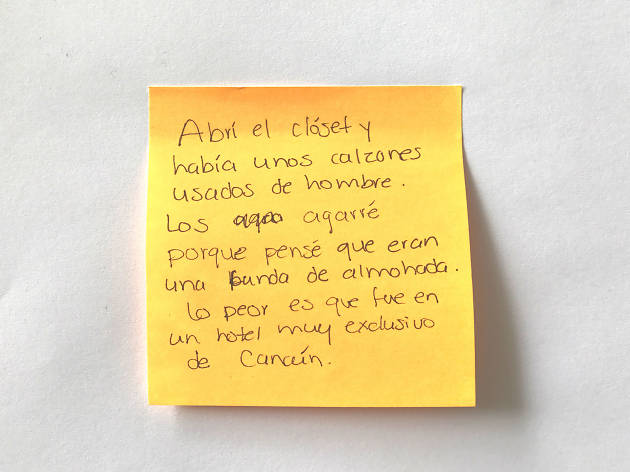 Abrí el clóset y
había unos calzones
usados de hombre.
Los agarré
porque pensé que eran
una funda de almohada.
Lo peor es que fue en
un hotel muy exclusivo
de Cancún.